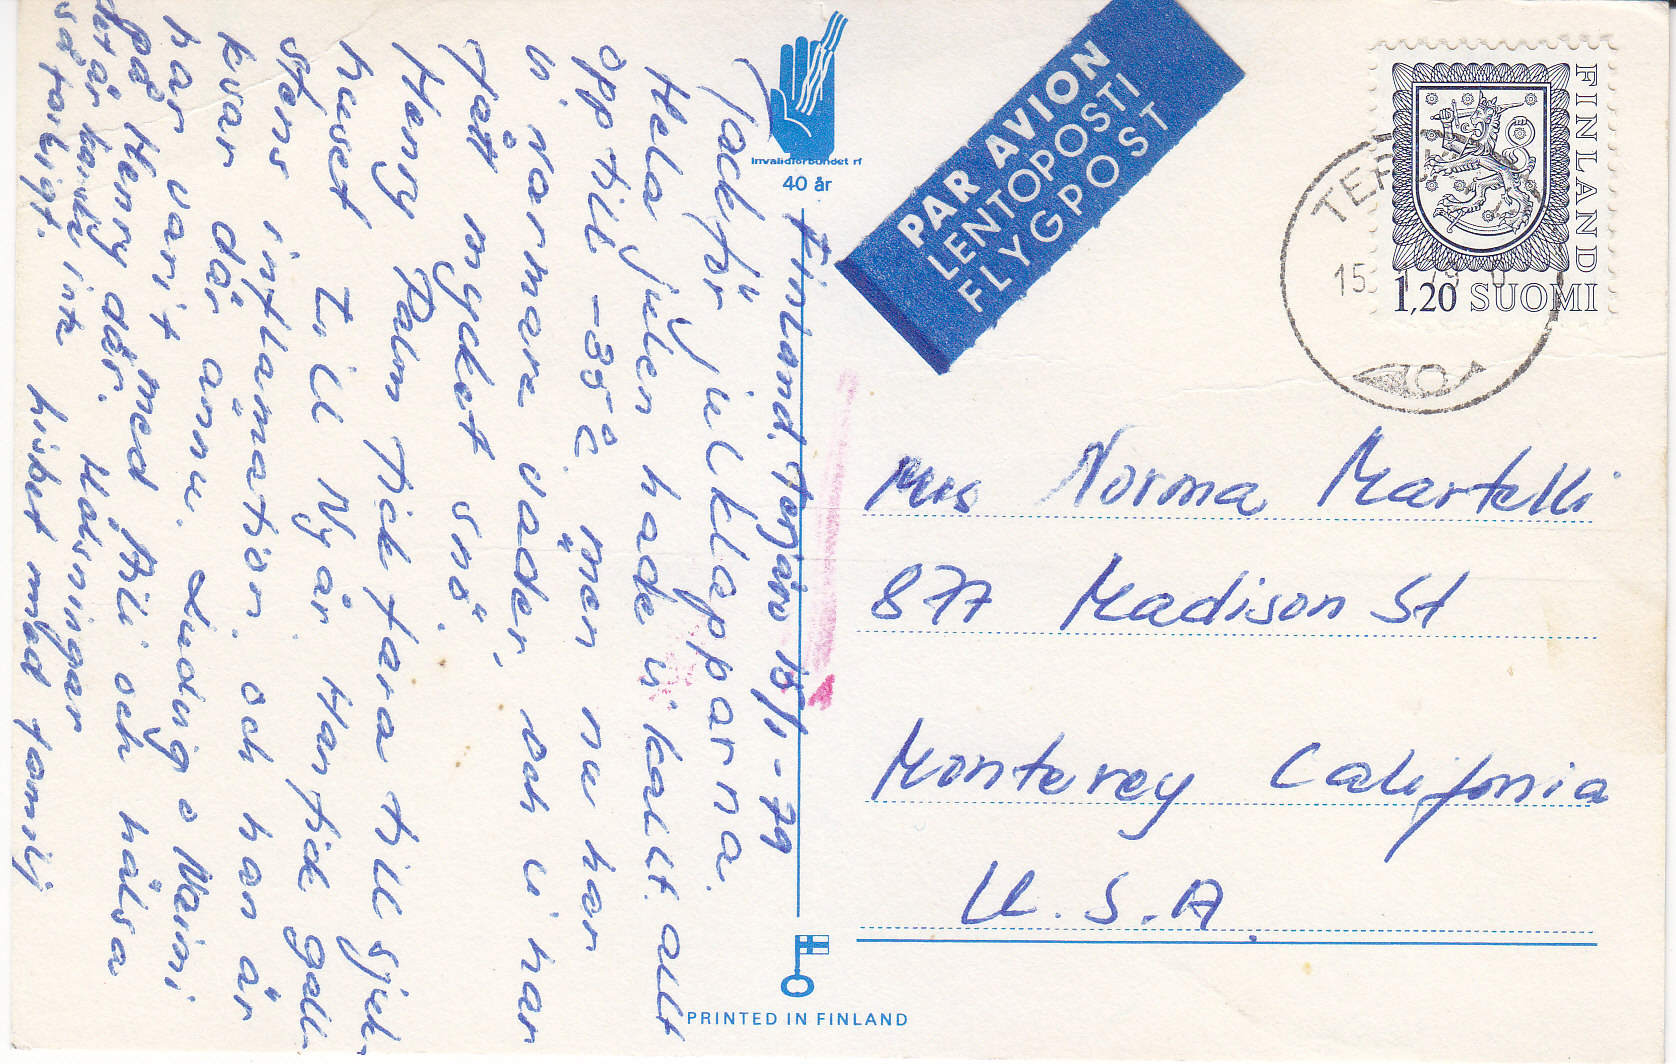 Finland, Terjärv 15/1-79
Tack för julklapparna.
Hela julen hade vi kallt. allt
opp till -35°C. men nu har
vi varmare väder, och vi har
fått mycket snö.
Henry Palm fick fara till sjuk-
huset till Nyår. Han fick gall-
stens inflamation, och han är
kvar där ännu. Ludvig o Naimi
har varit med Aili och hälsa
på Henry där. Hälsningar
det är hamti inte
så tokigt. Lisbet med familj
Invalidförbundet rf
40 år
PAR AVION
LENTOPOSTI
FLYGPOST
FINLAND
1,20 SUOMI
15. 1.79
Mrs Norma Martelli
877 Madison St
Monterey California
U.S.A.
PRINTED IN FINLAND